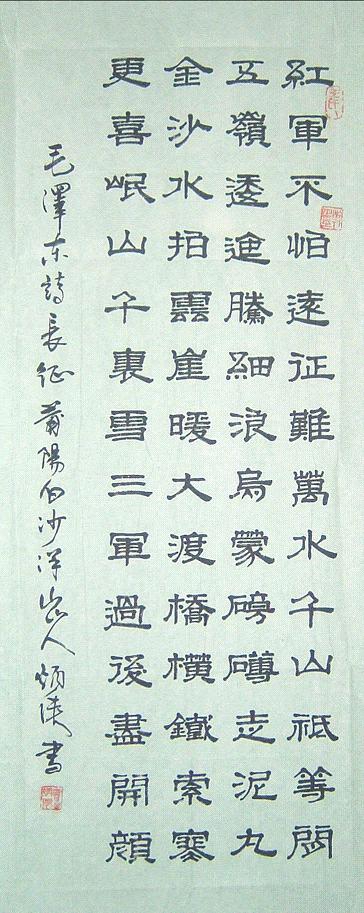 紅軍不怕遠征難萬水千山祗等閒
五嶺逶迤騰細浪烏蒙磅礴走泥丸
金沙水拍雲崖暖大渡橋橫鐵索寒
更喜岷山千里雪三軍過後盡開顔
毛澤东詩長征莆陽白沙洋岩人炳俠书